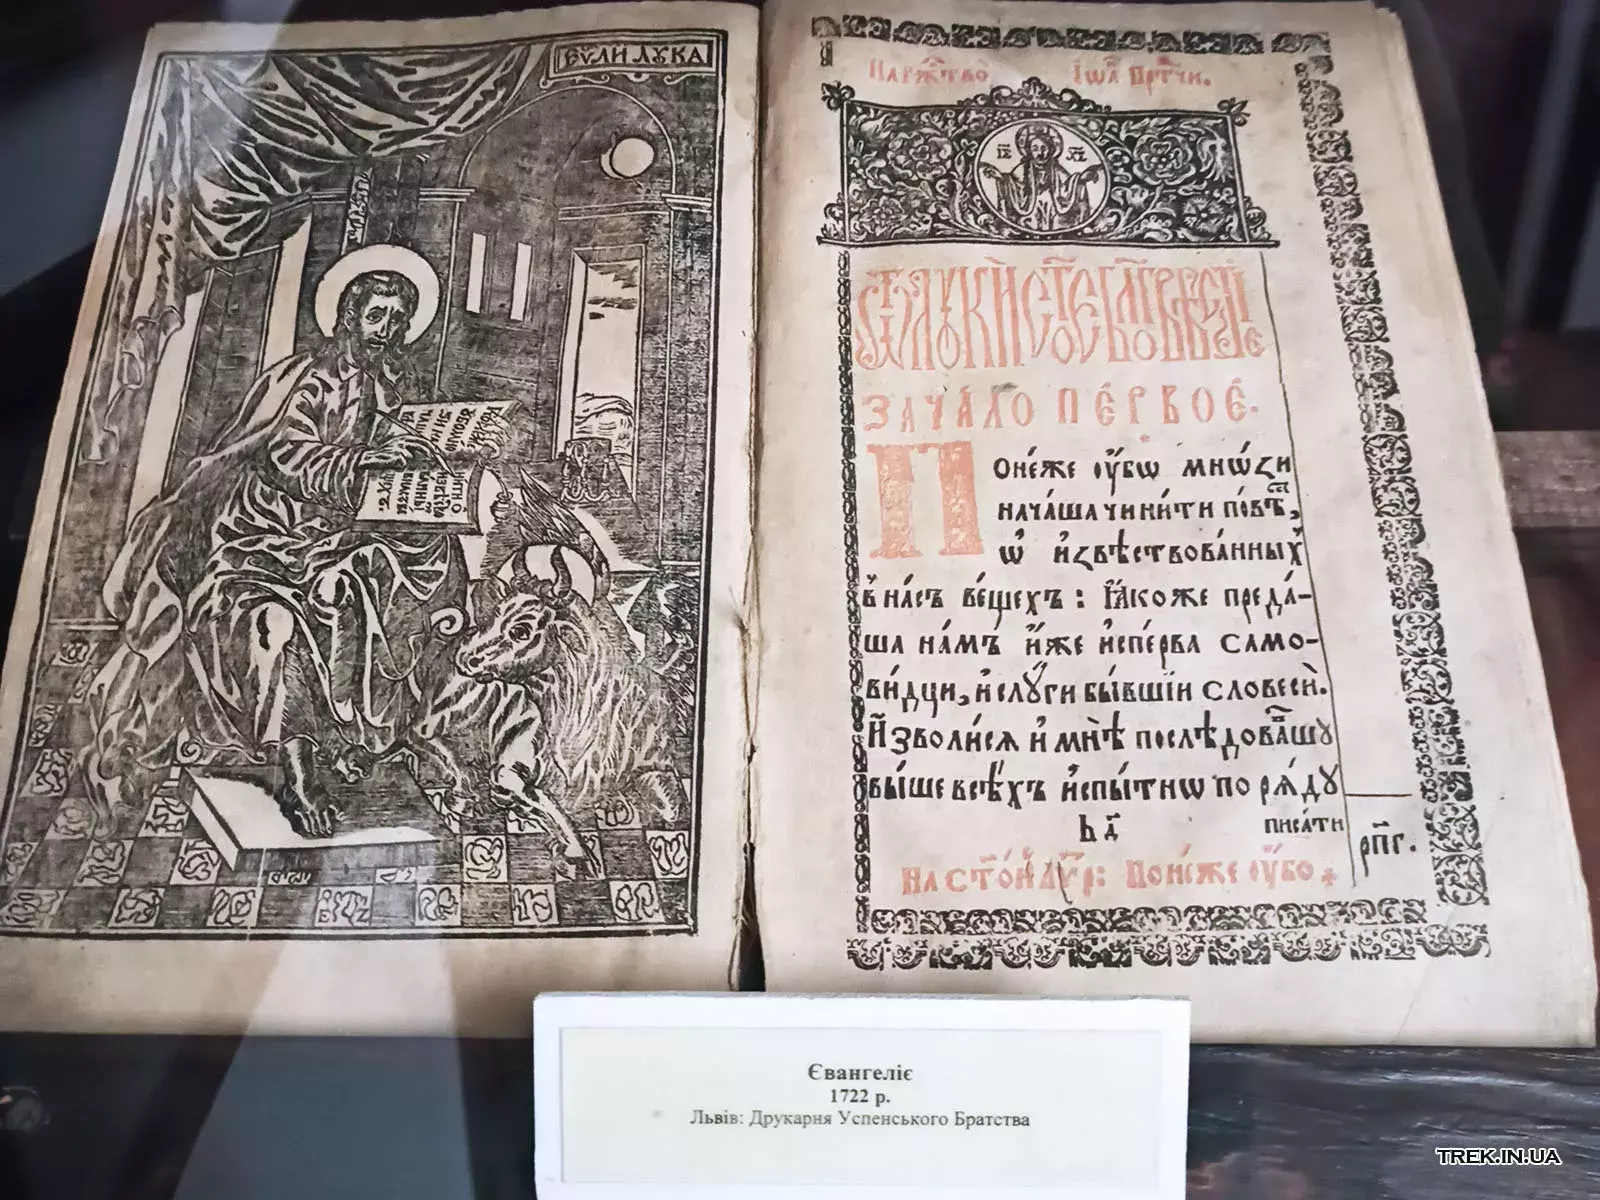 ЕѴ҃ЛИ ЛУКА
На рж҃тво Іѡ҃а Пр҃тчи.
І҃С Х҃С
ЗАЧА́ЛО ПЕ́РВОЕ.
Поне́же ᲂу҆́бѡ мно́ѕи
нача́ша чини́ти по́вѣ́ст҇,
ѡ҆ и҆звѣ́ствованныхъ
в на́съ ве́щехъ : Ꙗ҆́коже преда́-
ша на́мъ и҆̀же и҆спе́рва само-
ви́дци, и҆ слꙋги̑ бы́вшїи словесѝ.
И҆зво́лисѧ и҆ мнѣ̀ послѣ́довавшу
вы́ше всѣ̑хъ и҆спы́тнѡ по рѧ́ду
писа́ти
рп҃г.
На ст҃о́й лѵ҃р: Поне́же ᲂу҆́бо
Євангеліє
1722 р.
Львів: Друкарня Успенського Братства
TREK.IN.UA